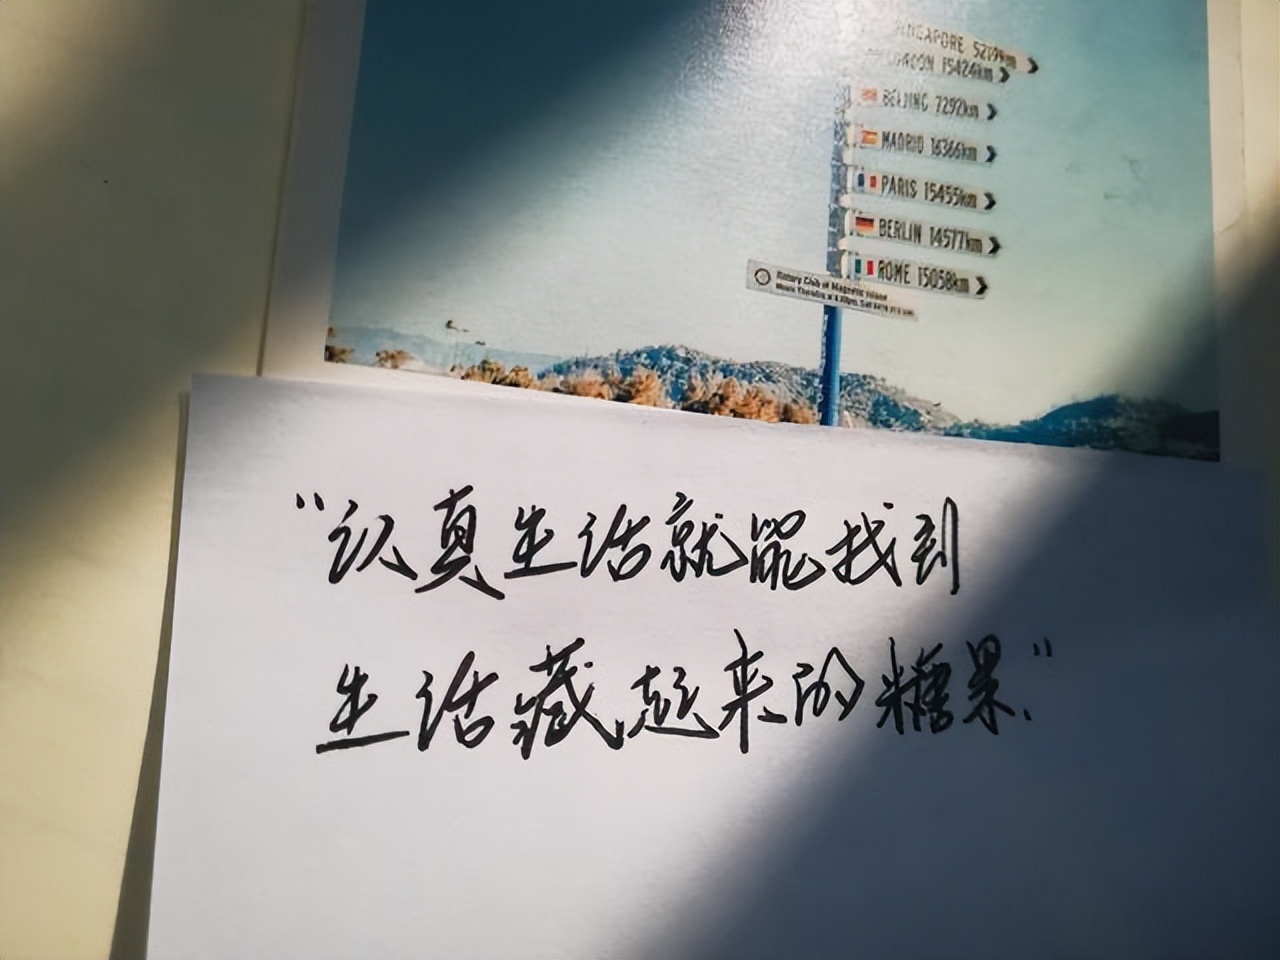 SINGAPORE 5219km
LONDON 15424km
BEIJING 7292km
MADRID 16366km
PARIS 15455km
BERLIN 14577km
ROME 15058km
Rotary Club of Magnetic Island
“认真生活就能找到
生活藏起来的糖果.”